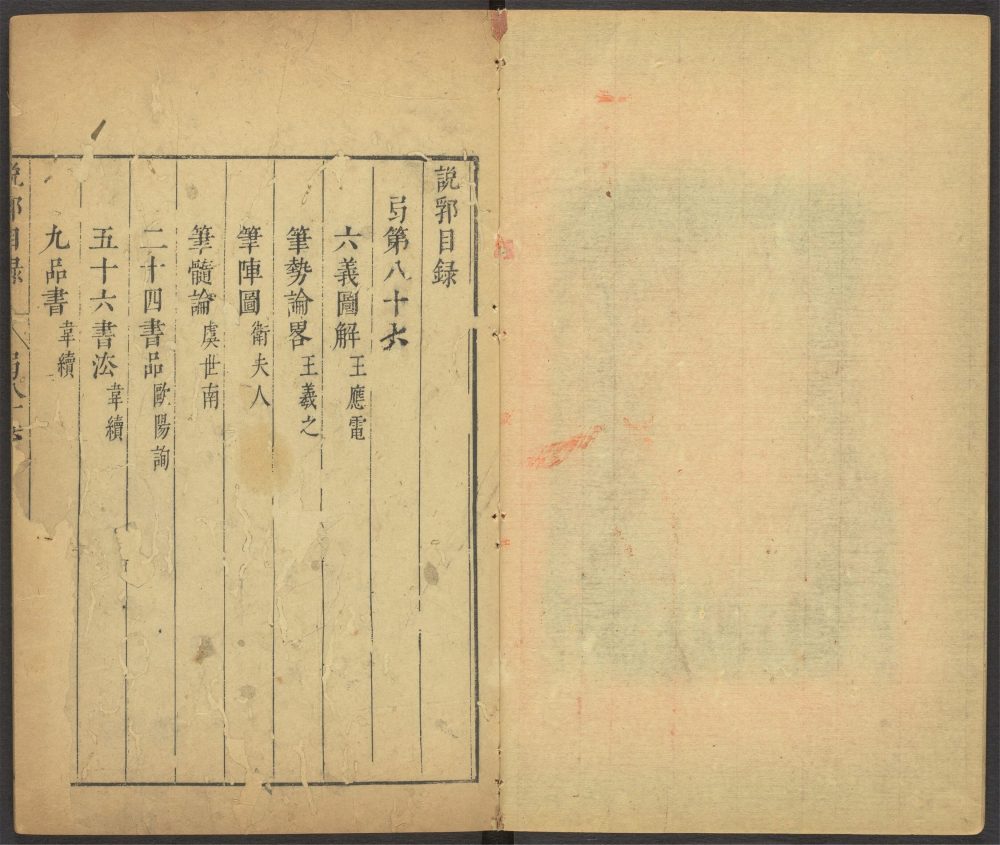 說郛目録
弓第八十六
六義圖解 王應電
筆勢論畧 王羲之
筆陣圖 衛夫人
筆髓論 虞世南
二十四書品 歐陽詢
五十六書法 韋續
九品書 韋續